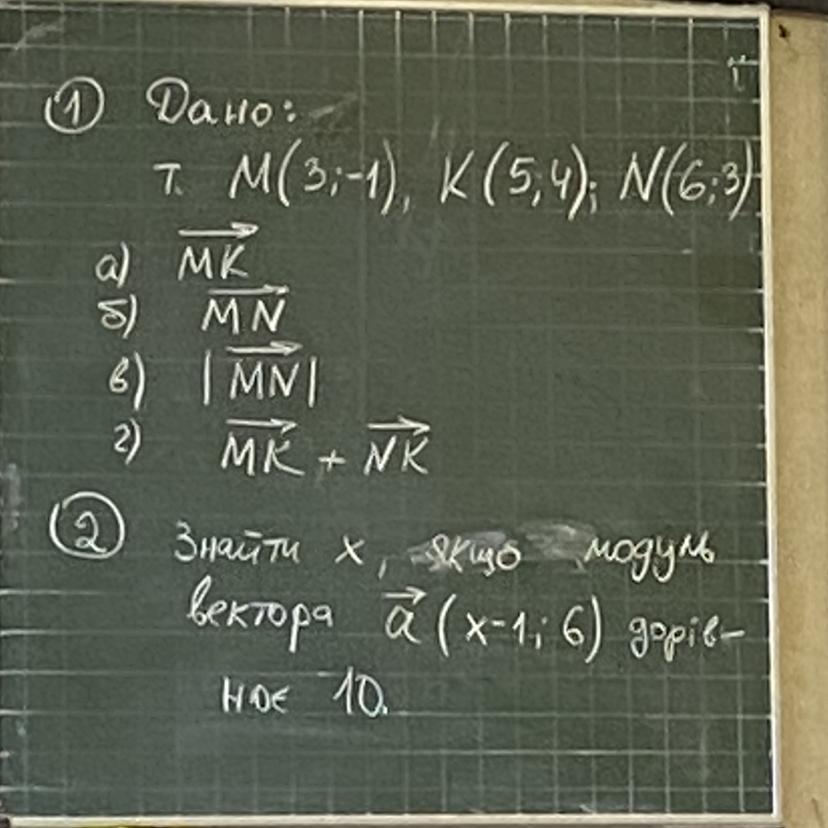 ① Дано:
т. M(3;-1), K(5,4); N(6;3)
а) MK
б) MN
в) |MN|
г) MK + NK
② Знайти x, якщо модуль
вектора a (x-1; 6) дорів-
нює 10.